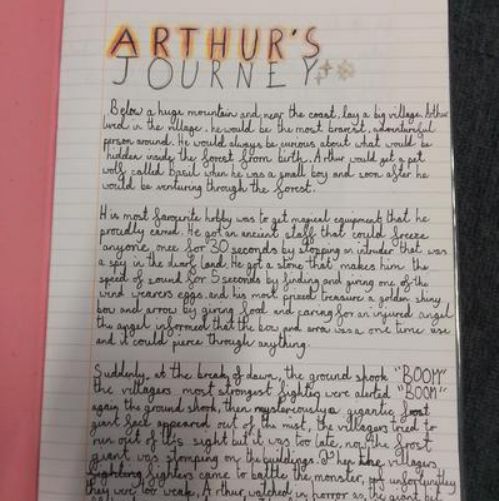 ARTHUR'S
JOURNEY
Below a huge mountain and near the coast, lay a big village. Arthur
lived in the village, he would be the most bravest, adventureful
person around. He would always be curious about what would be
hidden inside the forest from birth. Arthur would get a pet
wolf called Basil when he was a small boy and soon after he
would be venturing through the forest.
His most favourite hobby was to get magical equipment that he
proudly earned. He got an ancient staff that could freeze
anyone once for 30 seconds by stopping an intruder that was
a spy in the dwarf land. He got a stone that makes him the
speed of sound for 5 seconds by finding and giving one of the
wind weavers eggs and his most prized treasure a golden shiny
bow and arrow by giving food and caring for an injured angel
the angel informed that the bow and arrow was a one time use
and it could pierce through anything.
Suddenly, at the break of dawn, the ground shook "BOOM"
the villagers most strongest fighters were alerted "BOOM"
again the ground shook, then mysteriously a gigantic frost
giant face appeared out of the mist, the villagers tried to
run out of its sight but it was too late, now the frost
giant was stomping on the buildings. Then the villagers
fighters came to battle the monster, but unfortunately
they were too weak, Arthur watched in horror as he